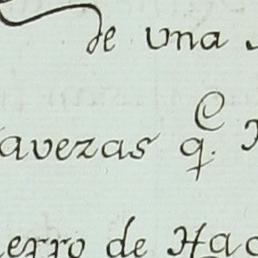 de una
avezas q.^e
erro de Hac